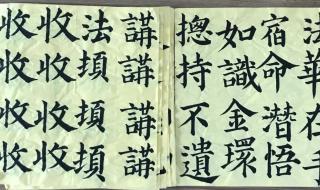 法華在手
宿命潛悟
如識金環
摠持不遺
講講講講
法
收收收收
收收收收